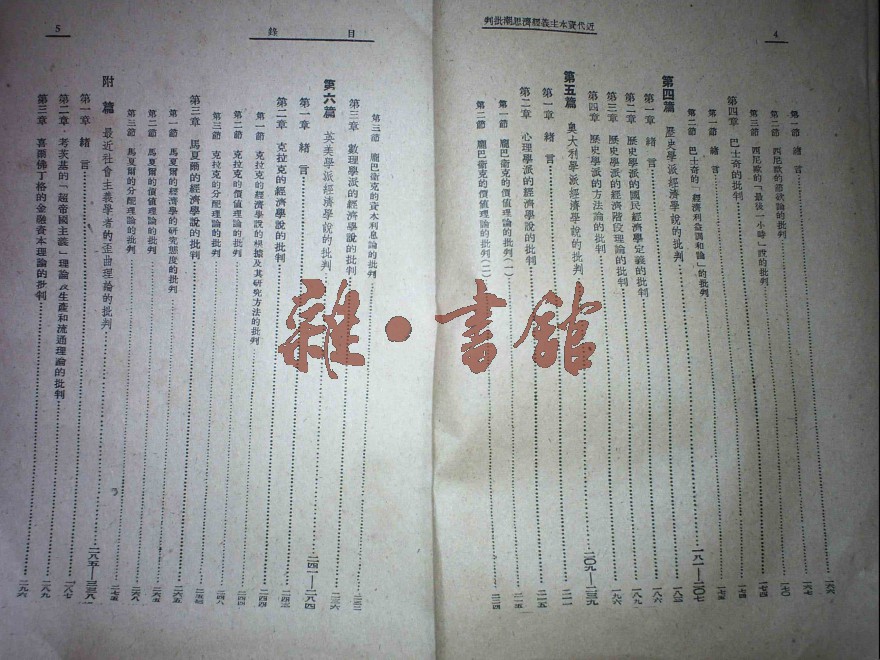 4
近代資本主義經濟思潮批判
第一節 緒言 一六六
第二節 西尼歐的節欲論的批判 一六七
第三節 西尼歐的「最後一小時」說的批判 一七〇
第四章 巴士奇的批判 一七四
第一節 緒言 一七四
第二節 巴士奇的「經濟利益調和論」的批判 一七五
第四篇 歷史學派經濟學說的批判 一八一—二〇七
第一章 緒言 一八三
第二章 歷史學派的國民經濟學定義的批判 一八六
第三章 歷史學派的經濟階段理論的批判 一八九
第四章 歷史學派的方法論的批判 一九六
第五篇 奧大利學派經濟學說的批判 二〇九—二三九
第一章 緒言 二一一
第二章 心理學派的經濟學說的批判 二一五
第一節 龐巴衛克的價值理論的批判(一) 二一五
第二節 龐巴衛克的價值理論的批判(二) 二二四
目錄
5
第三節 龐巴衛克的資本利息論的批判 二三二
第三章 數理學派的經濟學說的批判 二三六
第六篇 英美學派經濟學說的批判 二四一—二八四
第一章 緒言 二四三
第二章 克拉克的經濟學說的批判 二四四
第一節 克拉克的經濟學說的根據及其研究方法的批判 二四四
第二節 克拉克的價值理論的批判 二四八
第三節 克拉克的分配理論的批判 二五三
第三章 馬夏爾的經濟學說的批判 二六五
第一節 馬夏爾的經濟學的研究態度的批判 二六五
第二節 馬夏爾的價值理論的批判 二六八
第三節 馬夏爾的分配理論的批判 二七五
附篇 最近社會主義學者的歪曲理論的批判 二八五—三三八
第一章 緒言 二八七
第二章 考茨基的「超帝國主義」理論及生產和流通理論的批判 二八九
第三章 喜爾佛丁格的金融資本理論的批判 二九六
雜·書館